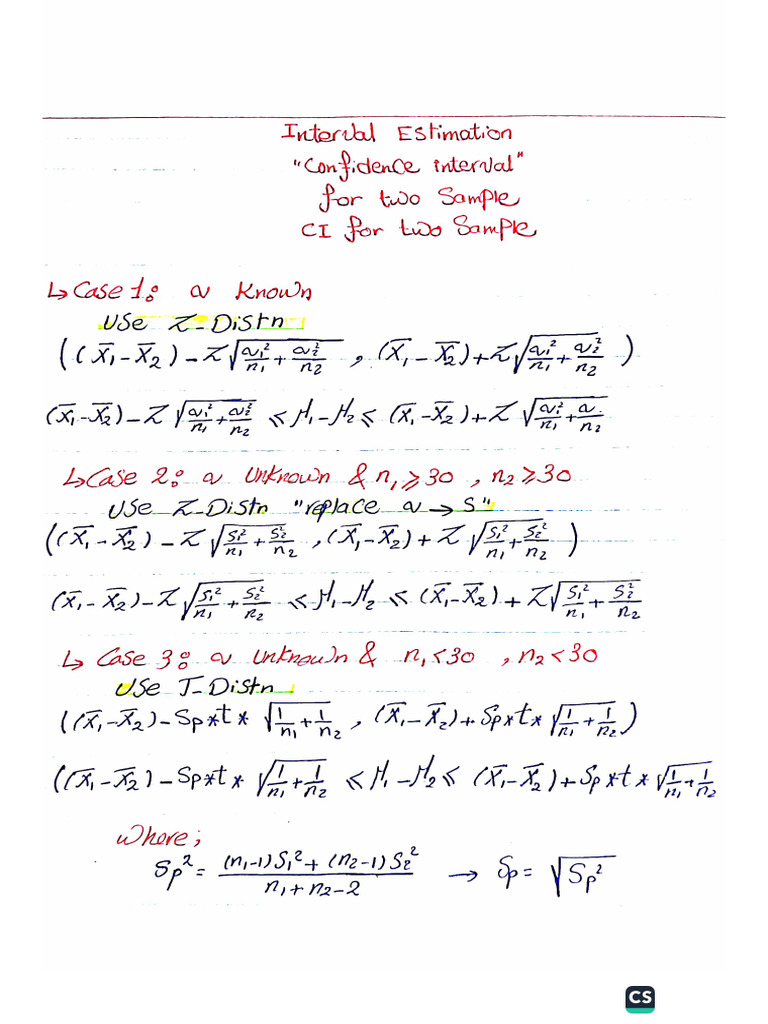 Interval Estimation
"Confidence interval"
for two Sample
CI for two Sample
↳ Case 1: σ Known
Use Z-Distn
((X̄₁-X̄₂)-Z√(σ₁²/n₁+σ₂²/n₂), (X̄₁-X̄₂)+Z√(σ₁²/n₁+σ₂²/n₂))
(X̄₁-X̄₂)-Z√(σ₁²/n₁+σ₂²/n₂) ≤ μ₁-μ₂ ≤ (X̄₁-X̄₂)+Z√(σ₁²/n₁+σ/n₂)
↳ Case 2: σ Unknown & n₁≥30, n₂≥30
Use Z-Distn "replace σ → S"
((X̄₁-X̄₂)-Z√(S₁²/n₁+S₂²/n₂), (X̄₁-X̄₂)+Z√(S₁²/n₁+S₂²/n₂))
(X̄₁-X̄₂)-Z√(S₁²/n₁+S₂²/n₂) ≤ μ₁-μ₂ ≤ (X̄₁-X̄₂)+Z√(S₁²/n₁+S₂²/n₂)
↳ Case 3: σ Unknown & n₁<30, n₂<30
Use T-Distn
((X̄₁-X̄₂)-Sp*t*√(1/n₁+1/n₂), (X̄₁-X̄₂)+Sp*t*√(1/n₁+1/n₂))
((X̄₁-X̄₂)-Sp*t*√(1/n₁+1/n₂) ≤ μ₁-μ₂ ≤ (X̄₁-X̄₂)+Sp*t*√(1/n₁+1/n₂)
Where;
Sp² = ((n₁-1)S₁²+(n₂-1)S₂²)/(n₁+n₂-2) → Sp = √(Sp²)
CS